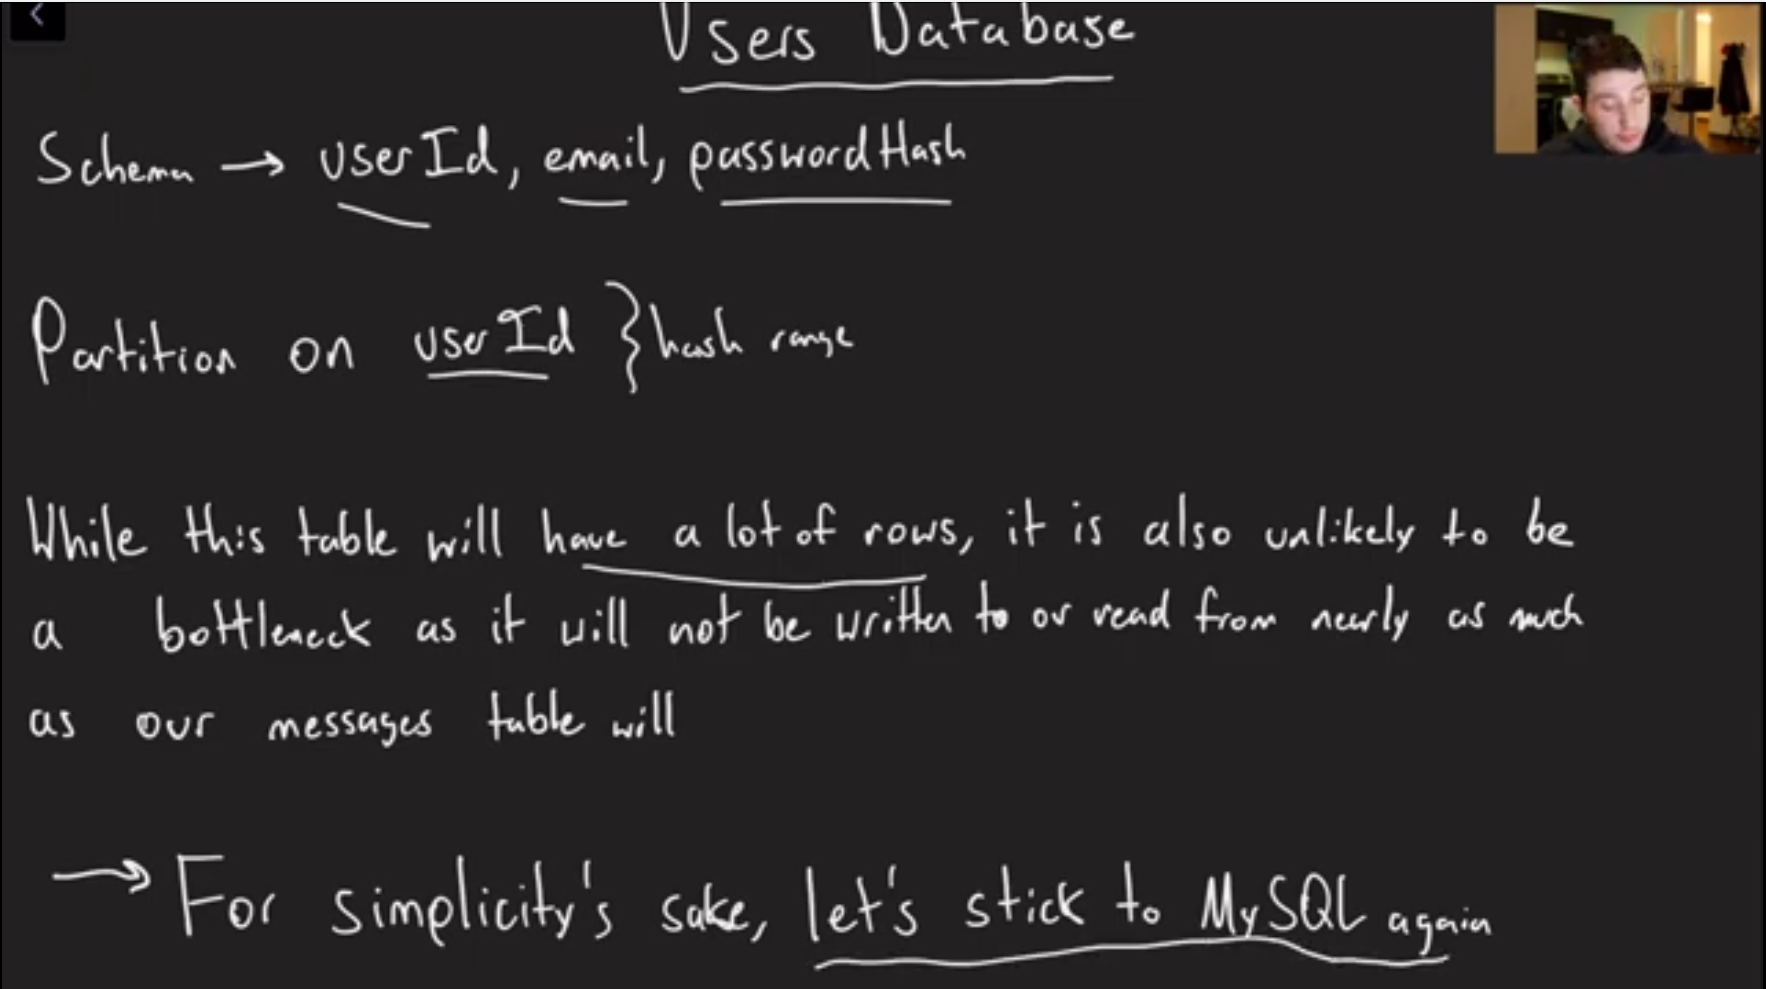 Users Database
Schema → userId, email, passwordHash
Partition on userId } hash range
While this table will have a lot of rows, it is also unlikely to be
a bottleneck as it will not be written to or read from nearly as much
as our messages table will
→ For simplicity's sake, let's stick to MySQL again